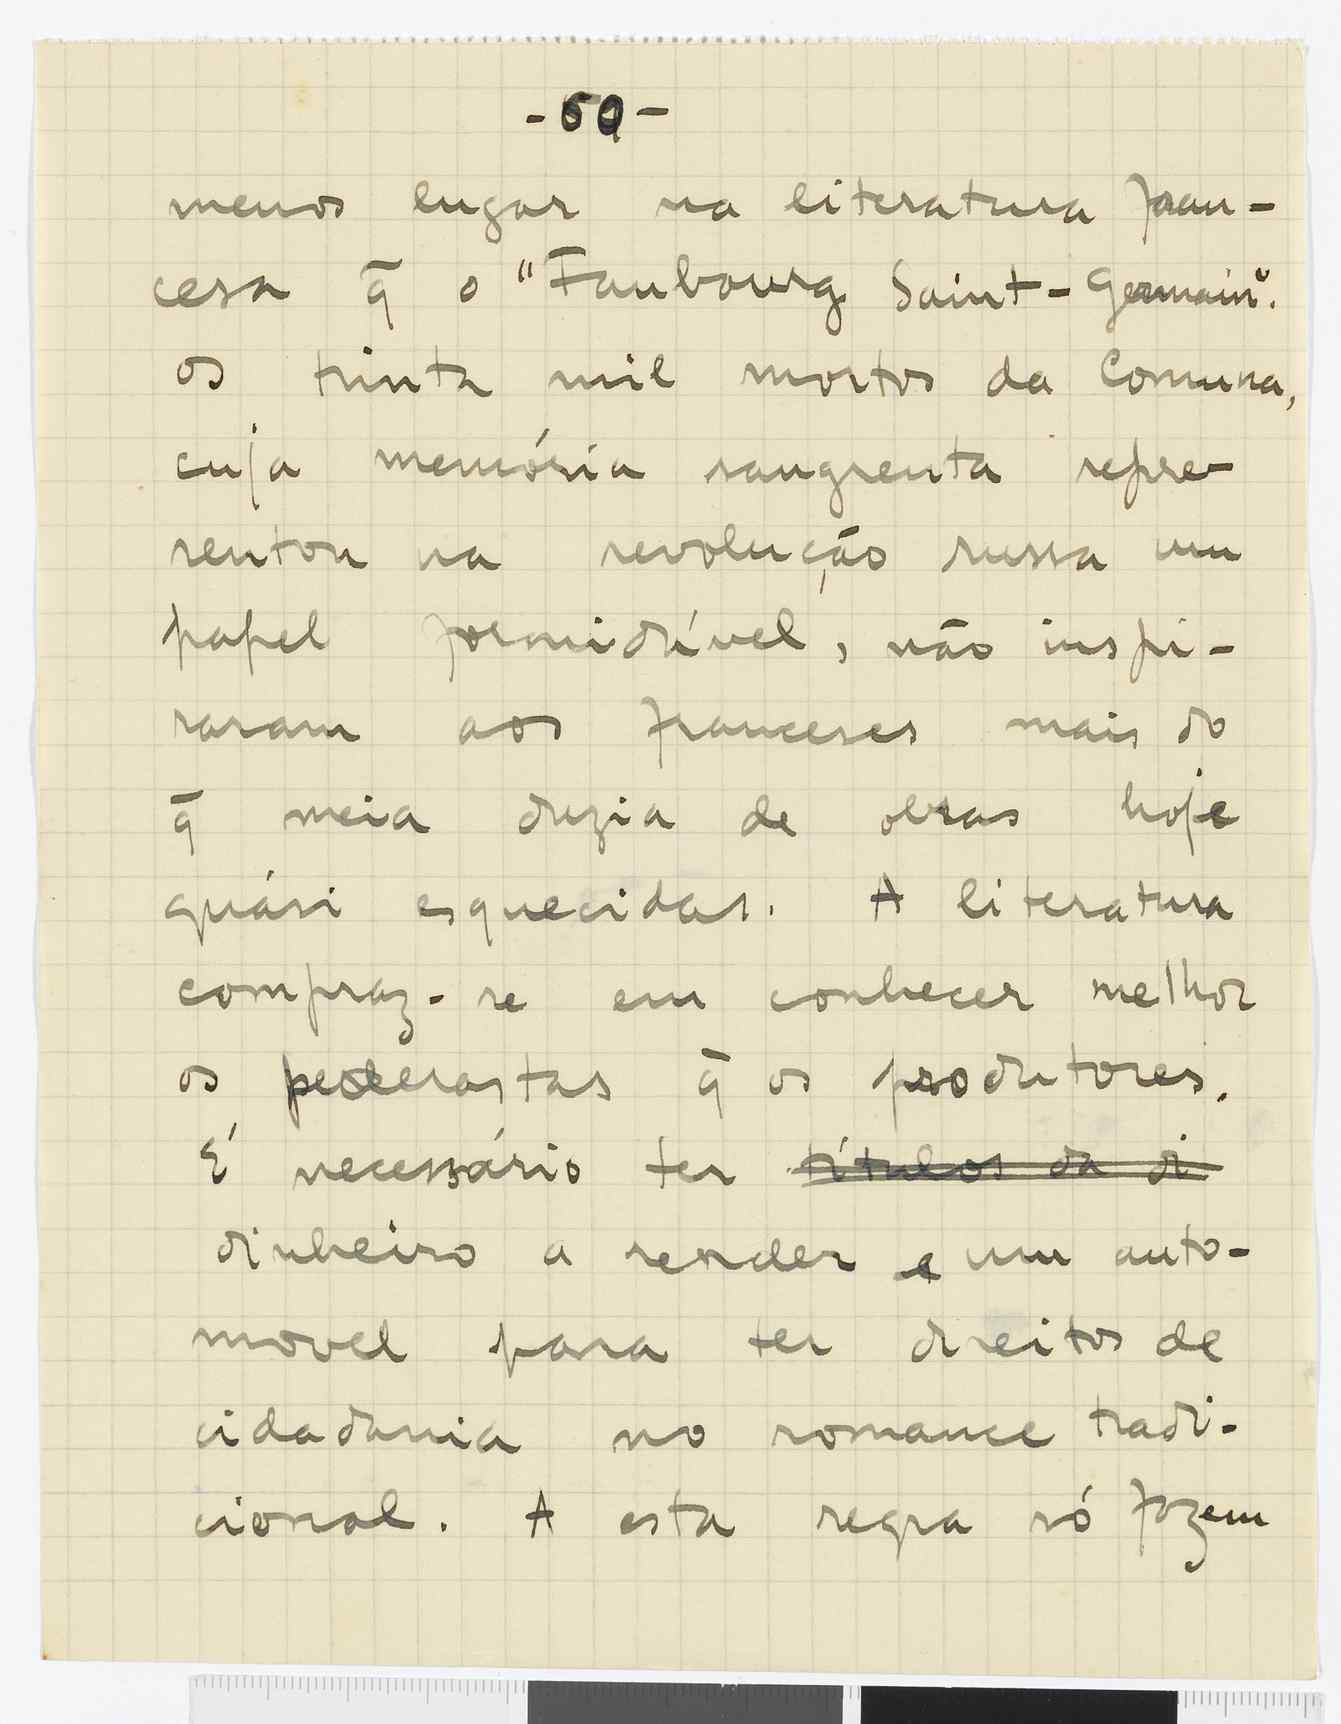 -60-
menos lugar na literatura fran-
cesa q̄ o "Faubourg Saint-Germain".
Os trinta mil mortos da Comuna,
cuja memória sangrenta repre-
sentou na revolução russa um
papel formidável, não inspi-
raram aos franceses mais do
q̄ meia duzia de obras hoje
quási esquecidas. A literatura
compraz-se em conhecer melhor
os pederastas q̄ os produtores.
É necessário ter títulos da di
dinheiro a render e um auto-
movel para ter direitos de
cidadania no romance tradi-
cional. A esta regra só fazem